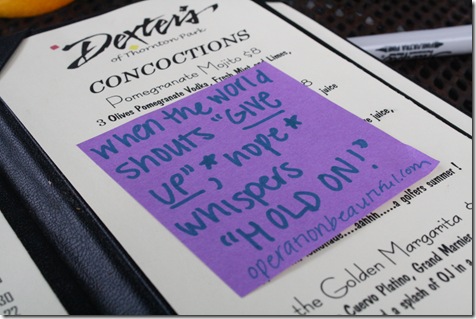 Dexter's
of Thornton Park
CONCOCTIONS
Pomegranate Mojito $8
3 Olives Pomegranate Vodka, Fresh Mint and Limes,
when the world
shouts "GIVE
UP"*, hope*
whispers
"HOLD ON!"
operationbeautiful.com
8
juice
juice,
aahhh.....a golfers summer!
the Golden Margarita
Cuervo Platino, Grand Marnier
a splash of OJ in a
30